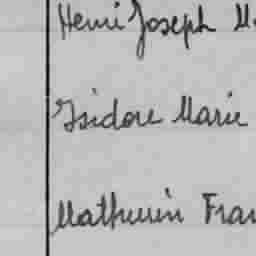 Henri Joseph M
Isidore Marie
Mathurin Fran